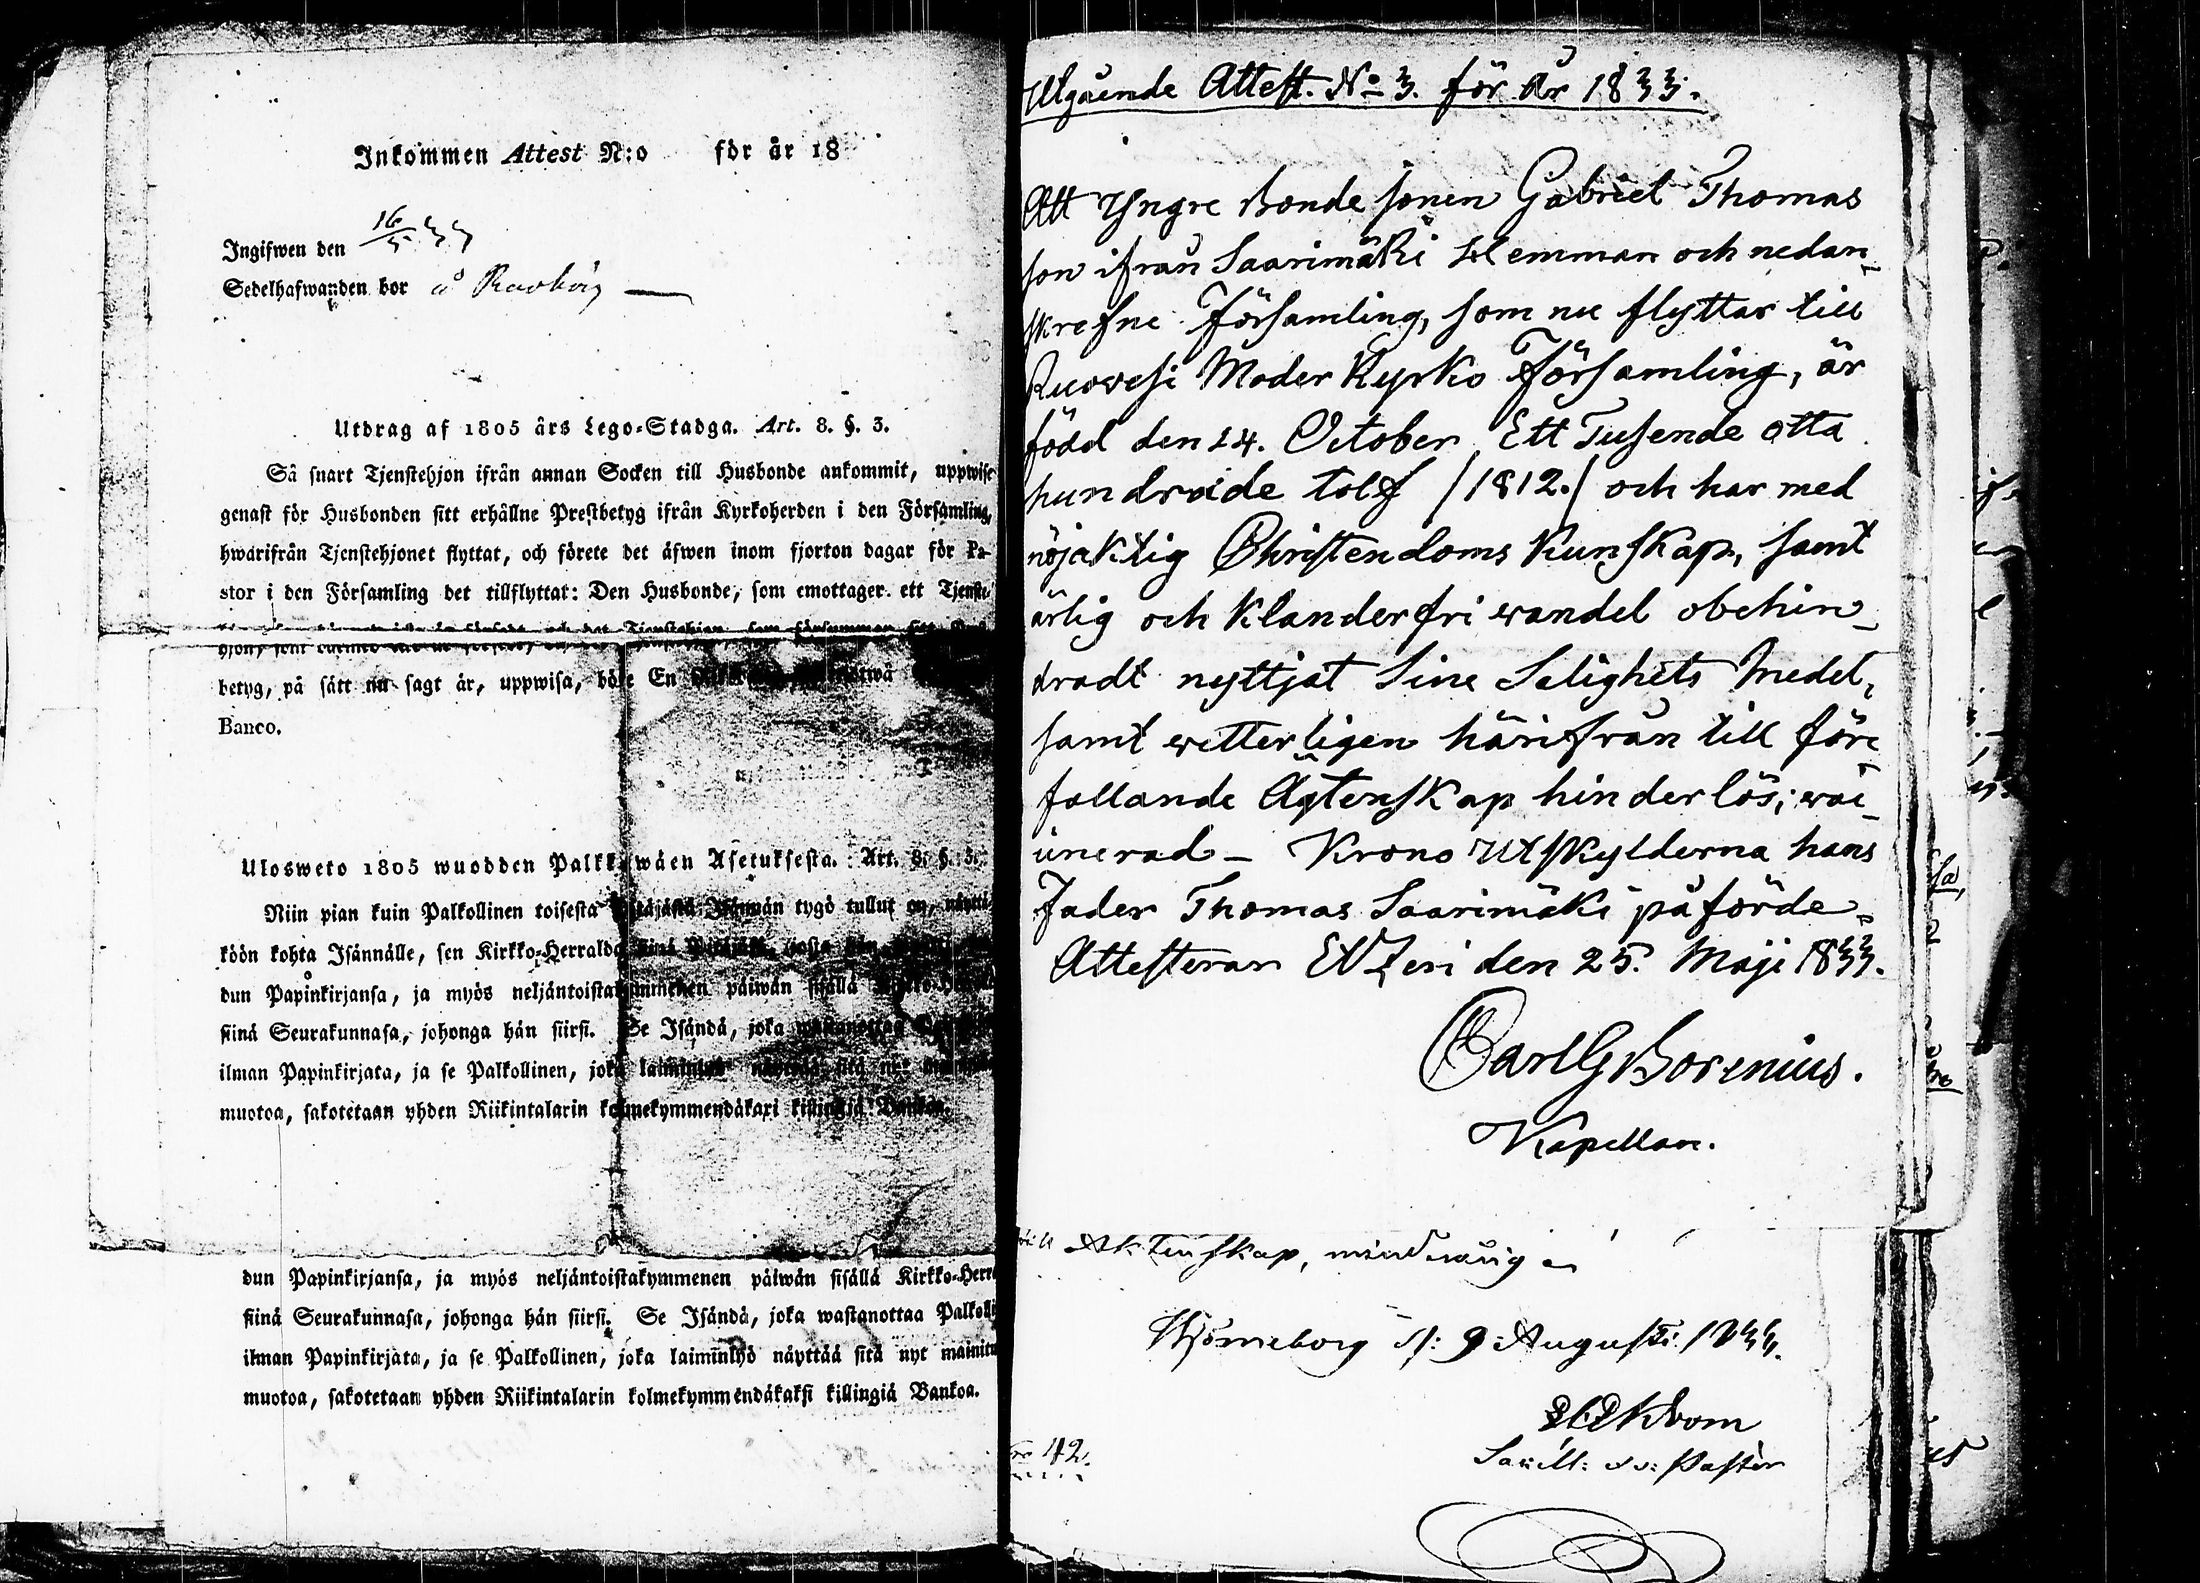 Inkommen Attest N:o för år 18
Ingifwen den 16/5 33
Sedelhafwanden bor å
Utdrag af 1805 års Lego-Stadga. Art. 8. §. 3.
Så snart Tjenstehjon ifrån annan Socken till Husbonde ankommit, uppwise
genast för Husbonden sitt erhållne Prestbetyg ifrån Kyrkoherden i den Församling,
hwarifrån Tjenstehjonet flyttat, och förete det äfwen inom fjorton dagar för Pa-
stor i den Församling det tillflyttat: Den Husbonde, som emottager ett Tjenste-
betyg, på sätt nu sagt är, uppwisa, böte En
Banco.
Ulosweto 1805 wuodden Palkkawäen Asetuksesta. Art. 8. §. 3.
Niin pian kuin Palkollinen toisesta Pitäjästä Isännän tygö tullut on, näyttä-
köön kohta Isännälle, sen Kirkko-Herralda
dun Papinkirjansa, ja myös neljäntoistakymmenen päiwän sisällä
siinä Seurakunnasa, johonga hän siirsi. Se Isändä, joka wastanottaa
ilman Papinkirjata, ja se Palkollinen, joka laiminlyö näyttää sitä nyt
muotoa, sakotetaan yhden Riikintalarin kolmekymmendäkaxi killingiä Bankoa.
dun Papinkirjansa, ja myös neljäntoistakymmenen päiwän sisällä Kirkko-Herra
siinä Seurakunnasa, johonga hän siirsi. Se Isändä, joka wastanottaa Palkolli
ilman Papinkirjata, ja se Palkollinen, joka laiminlyö näyttää sitä nyt mainitu
muotoa, sakotetaan yhden Riikintalarin kolmekymmendäkaksi killingiä Bankoa.
Utgående Attest. No 3. för År 1833.
Att Yngre Bonde sonen Gabriel Thomas
son ifrån Saarimäki Hemman och nedan-
skrefne Församling, som nu flyttar till
Ruovesi Moder Kyrko Församling, är
född den 24. October Ett Tusende åtta
hundrade tolf /1812./ och har med
nöjaktig Christendoms Kunskap, samt
ärlig och klanderfri vandel obehin-
dradt nyttjat Sine Salighets Medel,
samt vetterligen härifrån till före
fallande Ägtenskap hinderlös; vac-
inerad - Krono Utskylderna hans
Fader Thomas Saarimäki påförde.
Attesterar Etzeri den 25. Maji 1833.
Carl G Borenius.
Kapellan.
till Aktenskap,
Björneborg d: 9 Augusti 1833.
v: Pastor
42.